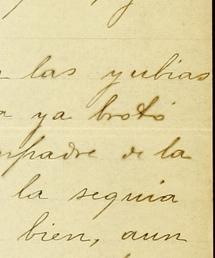 las yubias
ya brotó
de la
la seguia
bien, aun